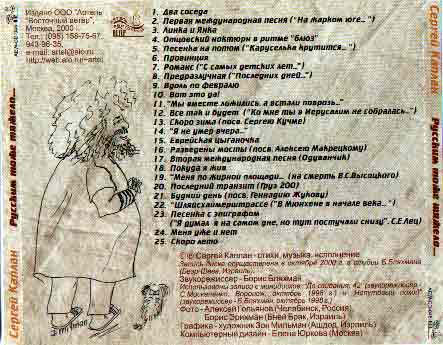 Издано ООО "Артель
"Восточный ветер",
Москва, 2000 г.
Тел.: (095) 158-75-67,
943-96-35,
e-mail: artel@aio.ru
http://web.aio.ru/~artel
1. Два соседа
2. Первая международная песня ("На жарком юге...")
3. Линка и Янка
4. Отцовский ноктюрн в ритме "блюз"
5. Песенка на потом ("Каруселька крутится...")
6. Провинция
7. Романс ("С самых детских лет...")
8. Предразлучная ("Последних дней...")
9. Вдоль по февралю
10. Вот это да!
11. "Мы вместе ложились, а встали поврозь..."
12. Все так и будет ("Ко мне ты в Иерусалим не собралась...")
13. Скоро зима (посв. Сергею Кучме)
14. "Я не умер вчера..."
15. Еврейская цыганочка
16. Разведены мосты (посв. Алексею Макрецкому)
17. Вторая международная песня (Одуванчик)
18. Покуда я жив
19. "Меня по жирной площади... (на смерть В.С.Высоцкого)
20. Последний транзит (Груз 200)
21. Будний день (посв. Геннадию Жукову)
22. "Шляйсхаймерштрассе ("В Мюнхене в начале века...")
23. Песенка с эпиграфом
("Я думал, я на самом дне, но тут постучали снизу". С.Е.Лец)
24. Меня уже и нет
25. Скоро лето
Сергей Каплан - стихи, музыка, исполнение
Запись диска осуществлена в октябре 2000 г. в студии Б.Бляхмана
(Беэр-Шева, Израиль).
Звукорежиссер - Борис Бляхман
Фото - Алексей Гольянов (Челябинск, Россия
Борис Эрихман (Бней Брак, Израиль)
Графика - художник Зоя Мильман (Ашдод, Израиль)
Компьютерный дизайн - Елена Юркова (Москва)
Сергей Каплан
Русским тоже тяжело...
Сергей Каплан
Русским тоже тяжело...